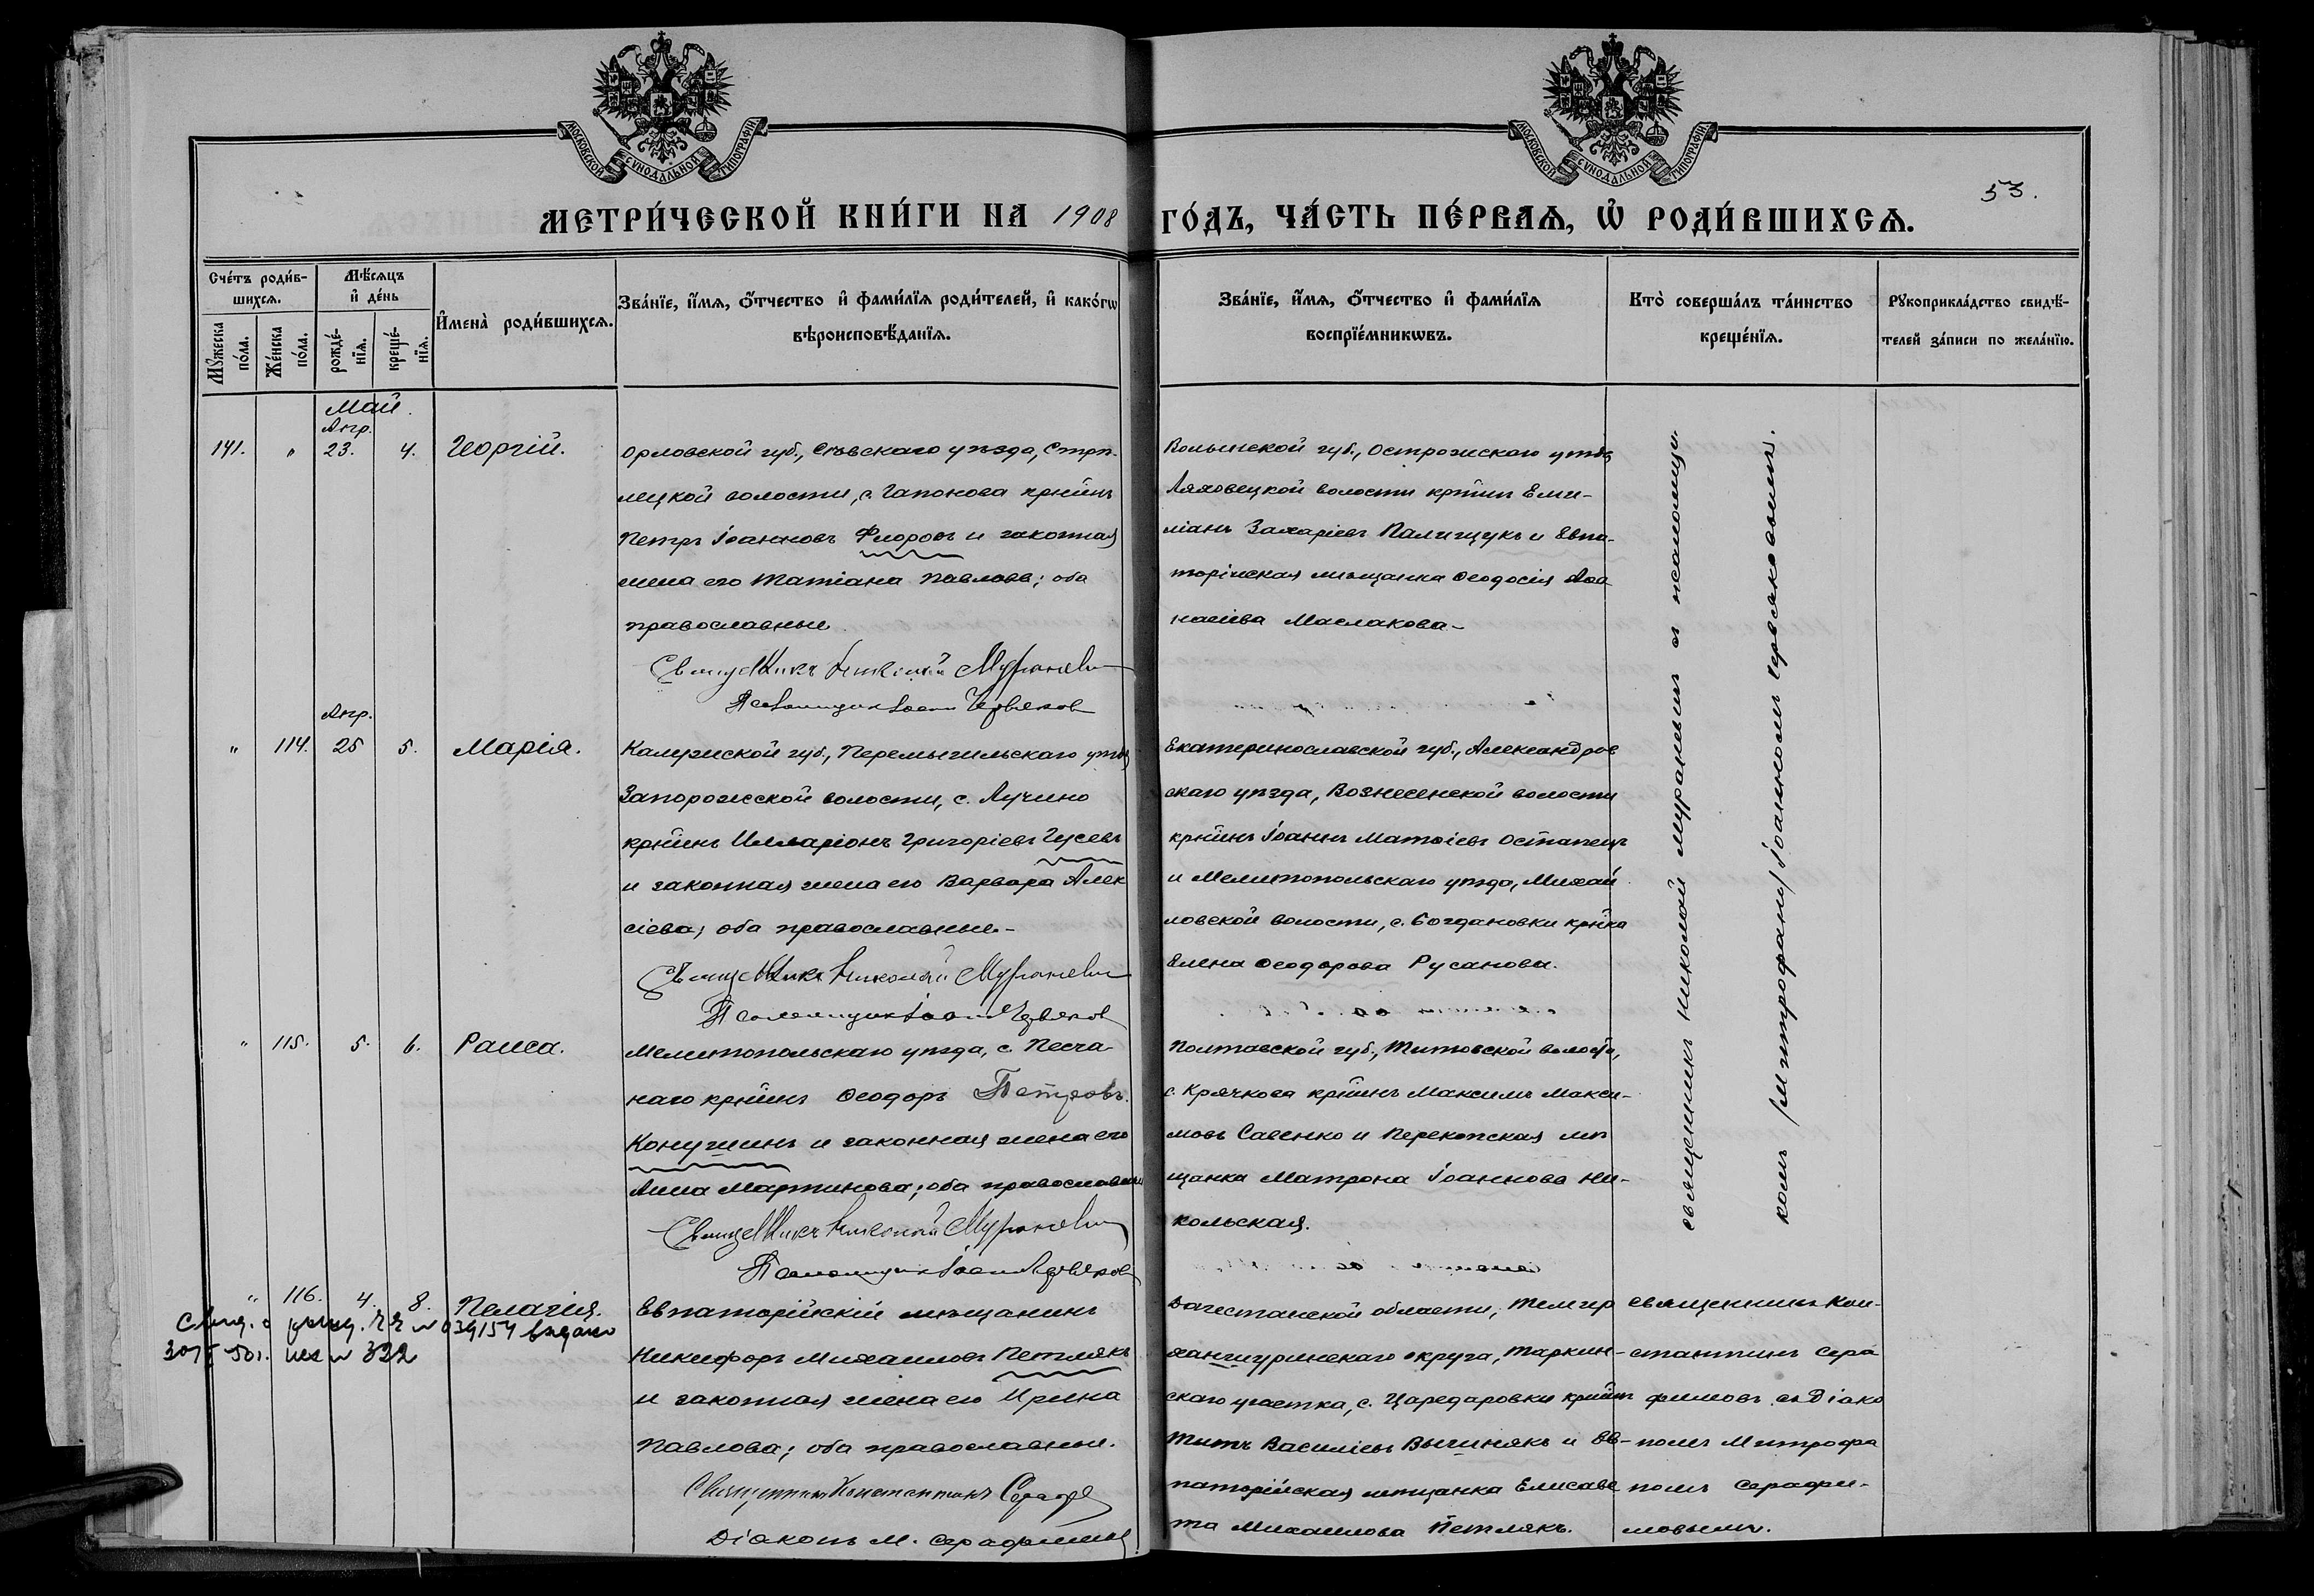 МОСКОВСКОЙ СѴНОДАЛЬНОЙ ТИПОГРАФІИ
МОСКОВСКОЙ СѴНОДАЛЬНОЙ ТИПОГРАФІИ
53.
МЕТРИ́ЧЕСКОЙ КНИ́ГИ НА 1908 ГО́ДЪ, ЧА́СТЬ ПЕ́РВАѦ, Ѽ РОДИ́ВШИХСѦ.
Сче́тъ роди́в-
шихсѧ.
Мꙋ́жеска по́ла.
Же́нска по́ла.
Мѣ́сѧцъ
и҆ де́нь
рожде́-
нїѧ.
креще́-
нїѧ.
И҆мена̀ роди́вшихсѧ.
Зва́нїе, и҆́мѧ, ѻ҆́тчество и҆ фами́лїѧ роди́телей, и҆ како́гѡ
вѣроисповѣ́данїѧ.
Зва́нїе, и҆́мѧ, ѻ҆́тчество и҆ фами́лїѧ
воспрїе́мникѡвъ.
Кто̀ соверша́лъ та́инство
креще́нїѧ.
Рꙋкоприкла́дство свидѣ́-
телей за́писи по жела́нїю.
Май.
Апр.
141. " 23. 4. Георгій.
Орловской губ., Сѣвскаго уѣзда, Стрѣ-
лецкой волости, с. Гапонова крнинъ
Петръ Іоанновъ Флоровъ и законная
жена его Татіана Павлова; оба
православные.
Священникъ Николай Мураневичъ
Псаломщик Іоанн Червяков
Волынской губ., Острожскаго уѣзда
Ляховецкой волости крнинъ Еми-
ліанъ Захаріевъ Палищукъ и Евпа-
торійская мѣщанка Ѳеодосія Аѳа
насіева Маслакова.
Апр.
" 114. 25 5. Марія.
Калужской губ., Перемышльскаго уѣзда
Запорожской волости, с. Лучино
крнинъ Илларіонъ Григоріевъ Гусевъ
и законная жена его Варвара Алек
сіева; оба православные.
Священникъ Николай Мураневичъ
Псаломщик Іоанн Червяков
Екатеринославской губ., Александров
скаго уѣзда, Вознесенской волости
крнинъ Іоаннъ Матѳіевъ Остапецъ
и Мелитопольскаго уѣзда, Михай
ловской волости, с. Богдановки крнка
Елена Ѳеодорова Русанова.
" 115. 5. 6. Раиса.
Мелитопольскаго уѣзда, с. Песча-
наго крнинъ Ѳеодоръ Петровъ
Конушинъ и законная жена его
Анна Мартинова; оба православные
Священникъ Николай Мураневичъ
Псаломщик Іоанн Червяков
Полтавской губ., волости,
с. Крячкова крнинъ Максимъ Макси-
мовъ Савенко и Перекопская мѣ
щанка Матрона Іоаннова Ни-
кольская.
священникъ Николай Мураневич с псаломщи-
комъ Іоанномъ Червяковымъ.
" 116. 4. 8. Пелагія.
039154 выдано
322
Евпаторійскій мѣщанинъ
Никифоръ Михаиловъ Петлякъ
и законная жена его Ирина
Павлова; оба православные.
Священникъ Константинъ Сераф
Діаконъ М. Серафимов
Дагестанской области, Темир
ханшуринскаго округа, Таркин-
скаго участка, с. Царедаровки крнинъ
Титъ Василіевъ Вычинякъ и Ев-
паторійская мѣщанка Елисаве
та Михаилова Петлякъ.
священникъ Кон-
стантинъ Сера
фимовъ съ діако
номъ Митрофа
номъ Серафи-
мовымъ.